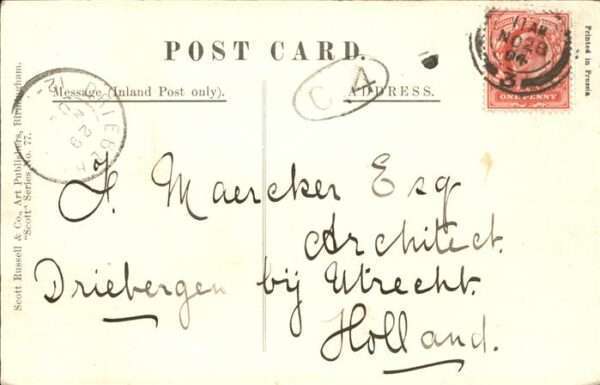 POST CARD.
Message (Inland Post only).
ADDRESS.
F. Maercker Esq
Architect.
Driebergen bij Utrecht.
Holland.
Scott Russell & Co., Art Publishers, Birmingham.
"Scott" Series No. 77.
Printed in Prussia
11 AM
NO 28
04
3
ONE PENNY